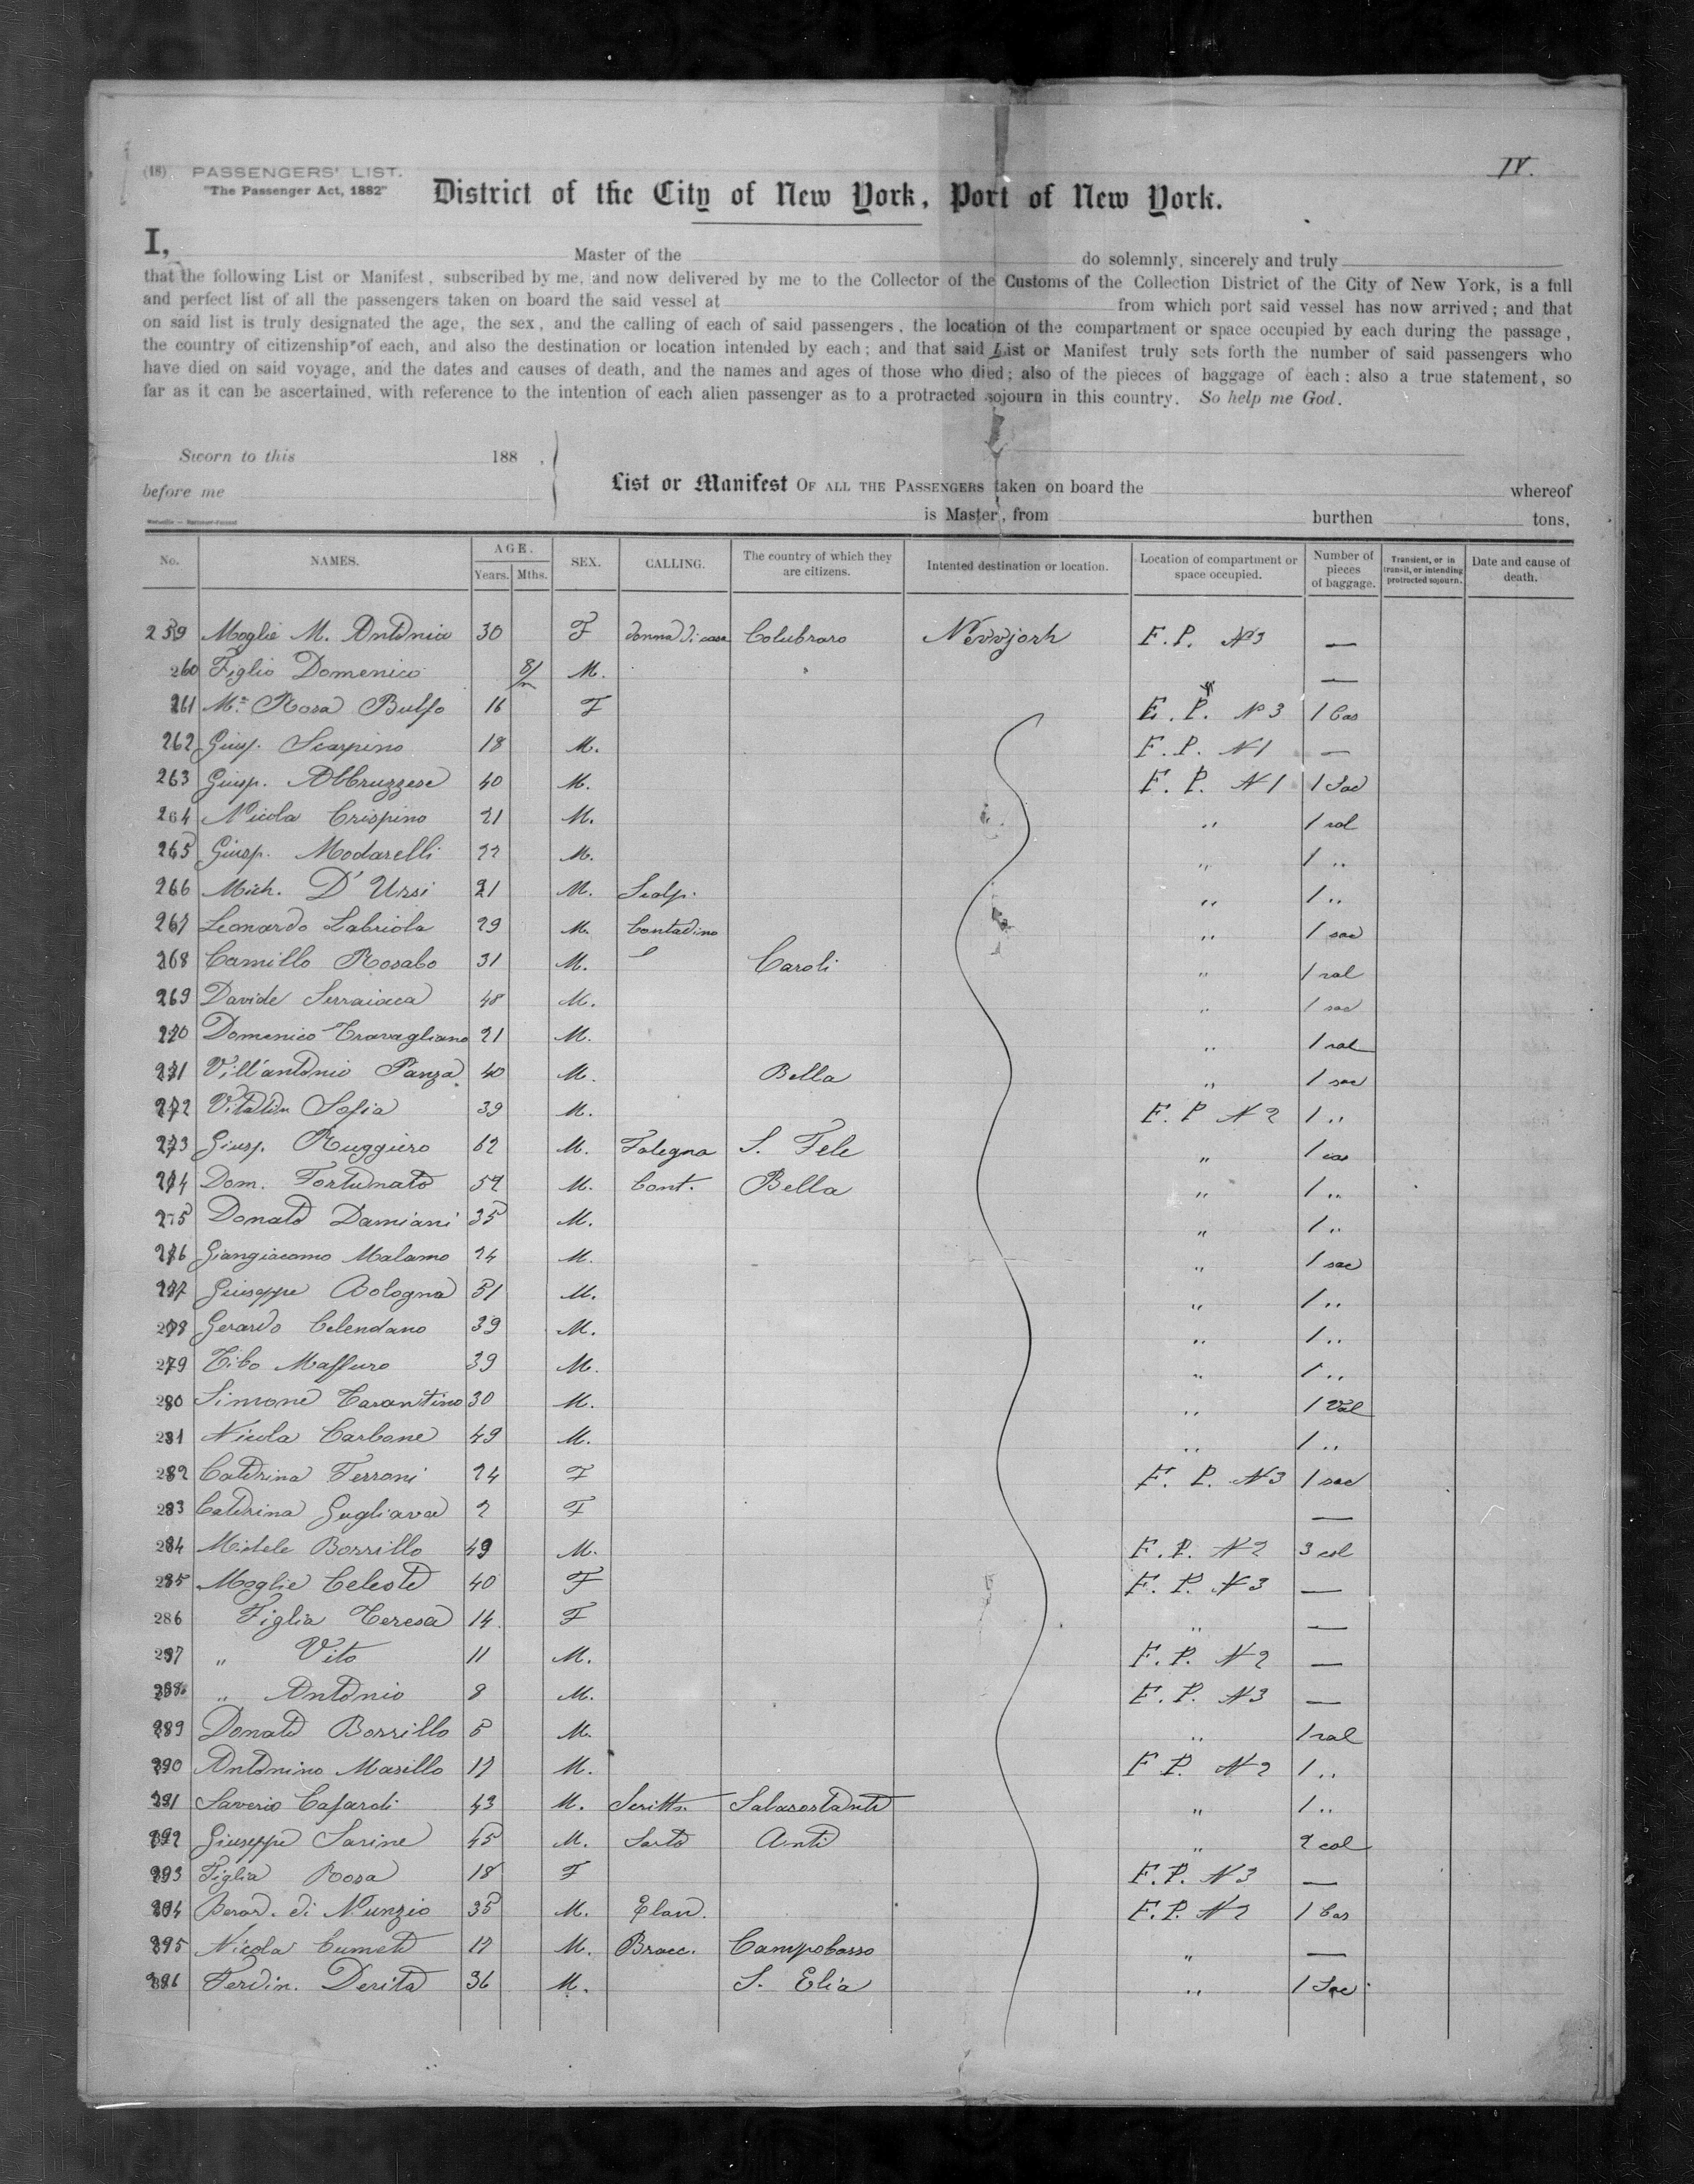 IV.
(18) PASSENGERS' LIST.
"The Passenger Act, 1882"
District of the City of New York, Port of New York.
I, Master of the do solemnly, sincerely and truly
that the following List or Manifest, subscribed by me, and now delivered by me to the Collector of the Customs of the Collection District of the City of New York, is a full
and perfect list of all the passengers taken on board the said vessel at from which port said vessel has now arrived; and that
on said list is truly designated the age, the sex, and the calling of each of said passengers, the location of the compartment or space occupied by each during the passage,
the country of citizenship of each, and also the destination or location intended by each; and that said List or Manifest truly sets forth the number of said passengers who
have died on said voyage, and the dates and causes of death, and the names and ages of those who died; also of the pieces of baggage of each: also a true statement, so
far as it can be ascertained, with reference to the intention of each alien passenger as to a protracted sojourn in this country. So help me God.
Sworn to this 188 ,
before me
List or Manifest OF ALL THE PASSENGERS taken on board the whereof
is Master, from burthen tons,
No. NAMES. AGE. Years. Mths. SEX. CALLING. The country of which they are citizens. Intented destination or location. Location of compartment or space occupied. Number of pieces of baggage. Transient, or in transit, or intending protracted sojourn. Date and cause of death.
259 Moglie M. Antonia 30 F donna di casa Colubraro Newjork F.P. No3 —
260 Figlio Domenico 8/m M. —
261 Ma Rosa Bulfo 16 F E.P. No 3 1 Cas
262 Giusp. Scarpino 18 M. F.P. N1 —
263 Giusp. Abbruzzese 40 M. F.P. N1 1 Sac
264 Nicola Crispino 21 M. " 1 val
265 Giusp. Modarelli 22 M. " 1 "
266 Mich. D'Ursi 21 M. Scalp. " 1 "
267 Leonardo Labriola 29 M. Contadino " 1 sac
268 Camillo Rosabo 31 M. Caroli " 1 val
269 Davide Serraiocca 48 M. " 1 sac
270 Domenico Travagliano 21 M. " 1 val
271 Vill'antonio Panza 40 M. Bella " 1 sac
272 Sofia 39 M. F.P N2 1 "
273 Giusp. Ruggiero 62 M. Falegna S. Fele " 1 cas
274 Dom. Fortunato 52 M. Cont. Bella " 1 "
275 Donato Damiani 35 M. " 1 "
276 Giangiacomo Malamo 24 M. " 1 sac
277 Giuseppe Bologna 51 M. " 1 "
278 Gerardo Celendano 39 M. " 1 "
279 Tibo Maffuro 39 M. " 1 "
280 Simone Tarantino 30 M. " 1 Val
281 Nicola Carbone 49 M. " 1 "
282 Caterina Ferroni 24 F F.P. N3 1 sac
283 Caterina Gugliava 2 F —
284 Michele Borrillo 49 M. F.P. N2 3 col
285 Moglie Celeste 40 F F.P. N3 —
286 Figlia Teresa 14 F " —
287 " Vito 11 M. F.P. N2 —
288 " Antonio 8 M. F.P. N3 —
289 Donato Borrillo 5 M. " 1 val
290 Antonino Masillo 17 M. F P. N2 1 "
291 Saverio Cafaroli 43 M. " 1 "
292 Giuseppe Sarine 45 M. Sarto Anti " 2 col
293 Figlia Rosa 18 F F.P. N3 —
294 Berar. di Nunzio 35 M. F.P. N2 1 Cas
295 Nicola Cumete 17 M. Bracc. Campobasso " —
296 Ferdin. Derita 36 M. S. Elia " 1 Sac